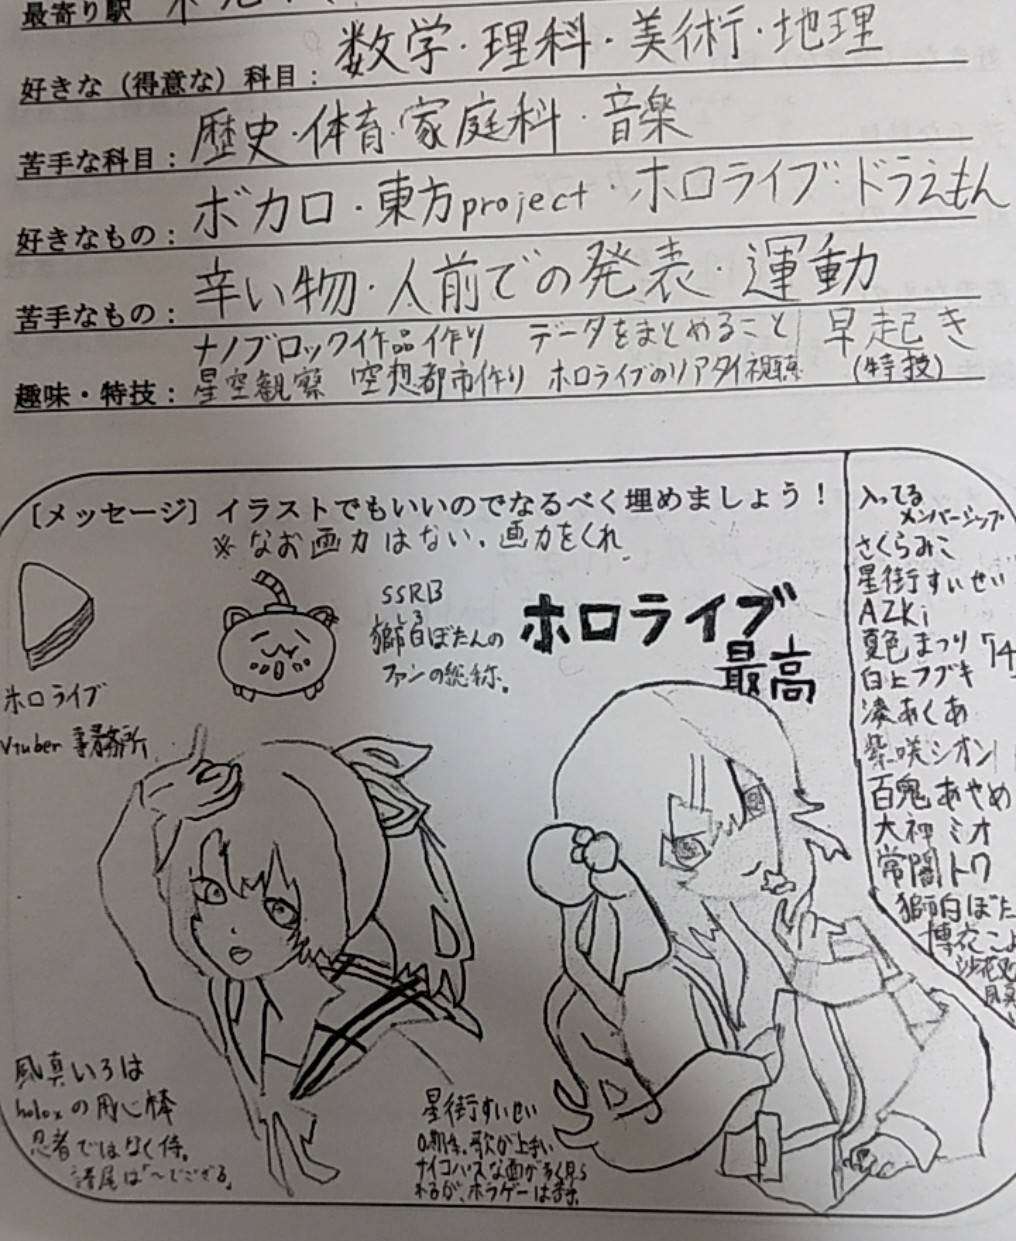 最寄り駅
好きな（得意な）科目： 数学・理科・美術・地理
苦手な科目： 歴史・体育・家庭科・音楽
好きなもの： ボカロ・東方project・ホロライブ・ドラえもん
苦手なもの： 辛い物・人前での発表・運動
ナノブロック作品作り データをまとめること 早起き
趣味・特技： 星空観察 空想都市作り ホロライブのリアタイ視聴 (特技)
［メッセージ］イラストでもいいのでなるべく埋めましょう！
※なお画力はない、画力をくれ
SSRB
獅白ぼたんの
ファンの総称。
ホロライブ
最高
ホロライブ
Vtuber 事務所
入ってる
メンバーシップ
さくらみこ
星街すいせい
AZKi
夏色まつり
白上フブキ
湊あくあ
紫咲シオン
百鬼あやめ
大神ミオ
常闇トワ
獅白ぼた
博衣こよ
沙花叉
風真いろは
holoxの用心棒
忍者ではなく侍。
語尾は「〜でござる」
星街すいせい
0期生。歌が上手い
サイコパスな面が多く見ら
れるが、ホラゲーは苦手。